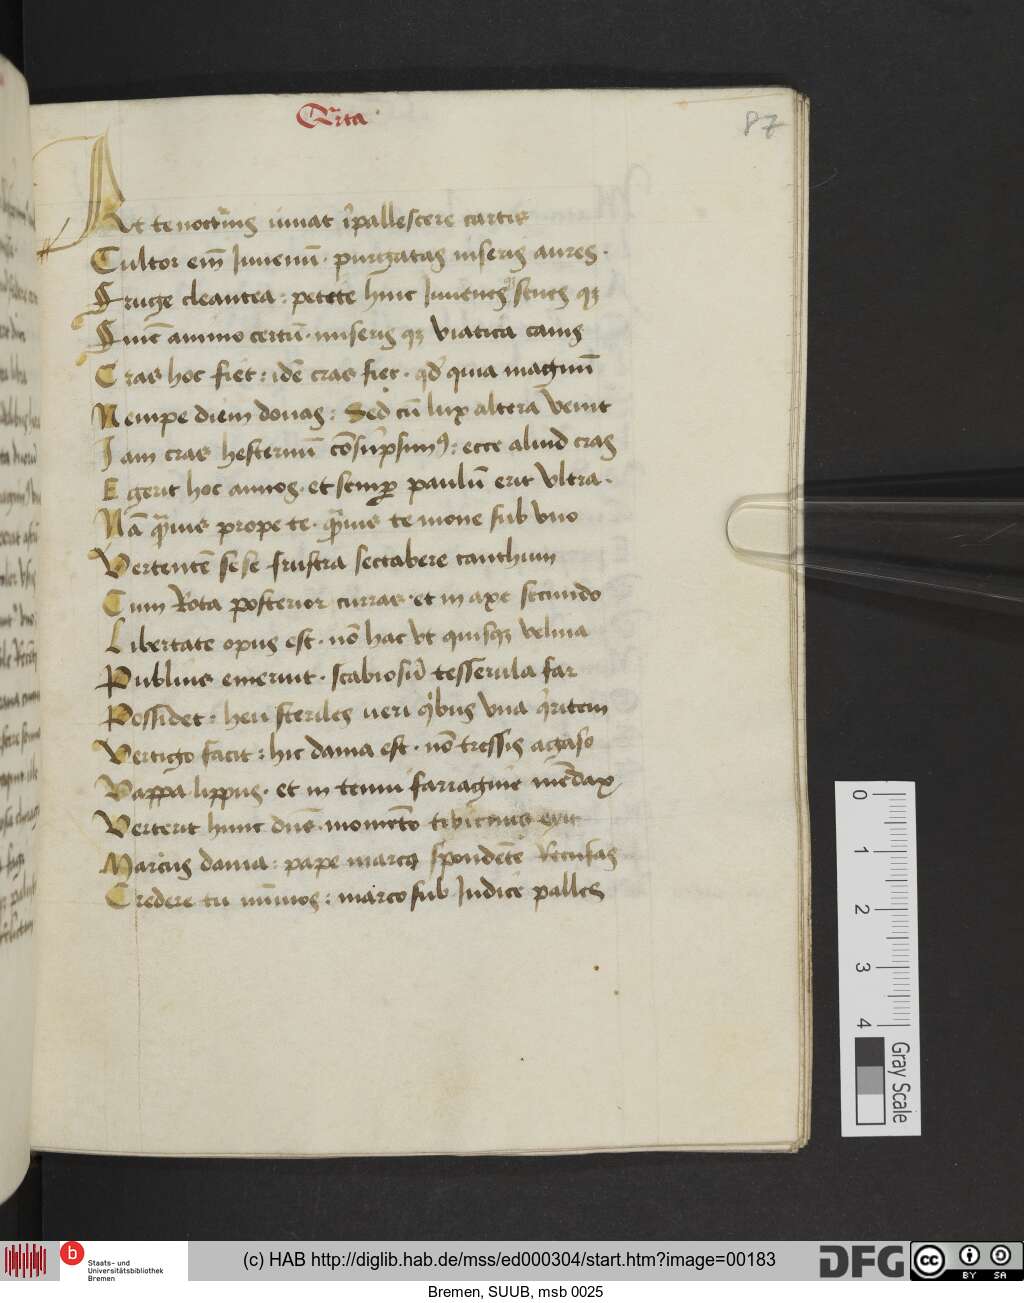 Q̄rta
87
At te noct̄nis iuuat ĩpallescere cartis
Cultor em̄ Iuuenū · purgatas inseris aures ·
Fruge cleantea : petite hinc Iuuenes senes qꝫ
Finē animo certū · miseris qꝫ viatica canis
Cras hoc fiet : idē cras fiet · qd̄ quia magnū
Nempe diem donas : Sed cū lux altera venit
Iam cras hesternū cōsūpsimꝰ : ecce aliud cras
Egerit hoc annos · et semꝑ paulū erit vltra ·
Nā q̄uis prope te · q̄uis temone sub vno
Vertentē sese frustra sectabere canthum
Cum Rota posterior curras · et in axe secundo
Libertate opus est · nō hac vt quisqꝫ velina
Publius emeruit · scabiosū tesserula far
Possidet · heu steriles ueri qͥbus vna qͥritem
Vertigo facit : hic dama est · nō tressis agaso
Vappa lippus · et in tenui farragine mēdax
Verterit hunc dn̄s · momēto tibinis exit
Marcus dama : pape marco spondēte Recusas
Credere tu nūmos : marco sub Iudice palles
0
1
2
3
4
Gray Scale
Staats- und
Universitätsbibliothek
Bremen
(c) HAB http://diglib.hab.de/mss/ed000304/start.htm?image=00183
DFG
cc BY SA
Bremen, SUUB, msb 0025